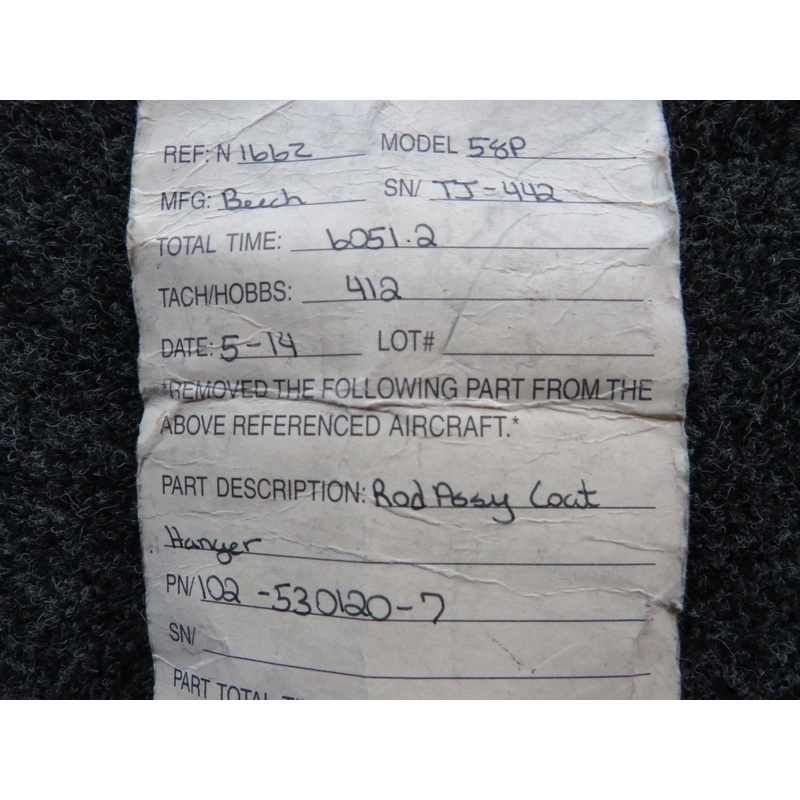 REF: N 1662 MODEL 58P
MFG: Beech SN/ TJ-442
TOTAL TIME: 6051.2
TACH/HOBBS: 412
DATE: 5-14 LOT#
*REMOVED THE FOLLOWING PART FROM THE
ABOVE REFERENCED AIRCRAFT.*
PART DESCRIPTION: Rod Assy Coat
Hanger
PN/ 102-530120-7
SN/
PART TOTAL